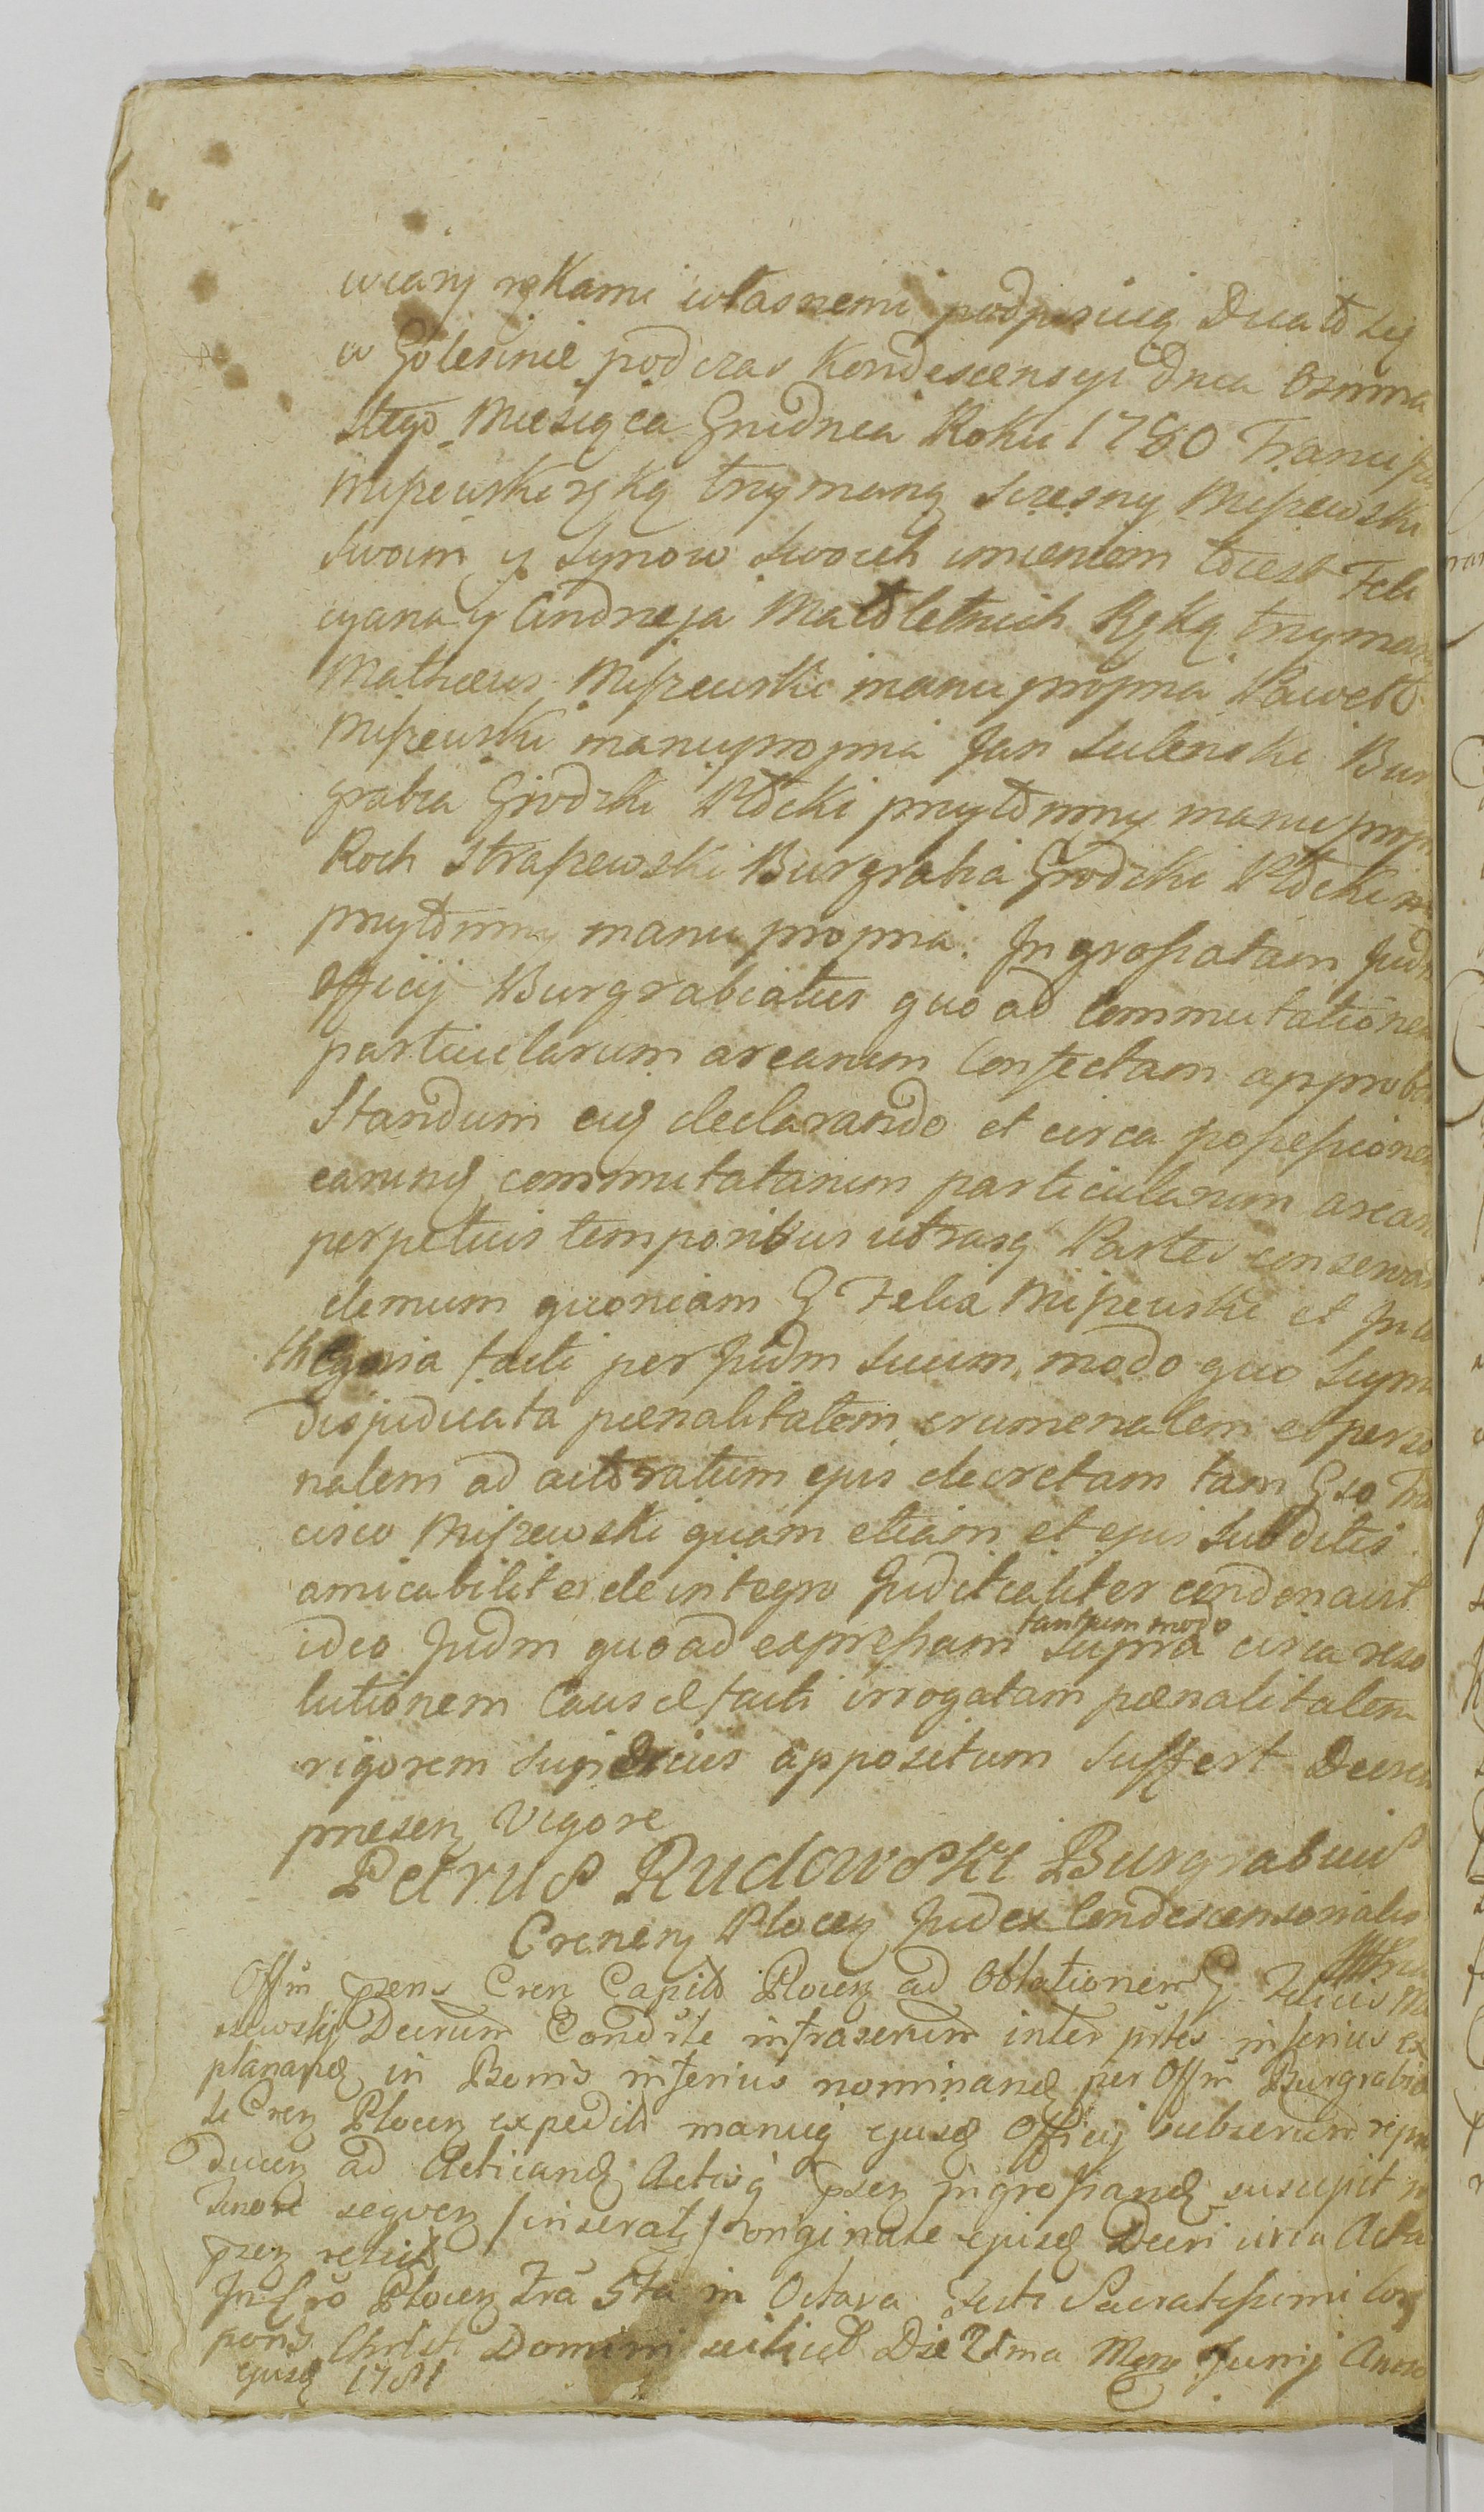 wcany rękami własnemi podpisuią Działo się
w Golesinie podczas Kondescensyi Dnia Osmna
stego Miesiąca Grudnia Roku 1780 Franci
Miszewski ręką trzymaną Szczęsny Miszewski
swoim y synow swoich imieniem to iest Feli
cyana y Andrzeja Małoletnich Ręką trzyma
Matheus Miszewski manu propria Paweł
Miszewski manu propria Jan Sulenski Bur
grabia Grodzki Płocki przytomny manu prop
Roch Straszewski Burgrabia Grodzki Płocki
przytomny manu propria. Ingrossatam Judm
Officij Burgrabiatus quo ad Commutationem
particularum arearum Confectam approba
Standum eiq declarando et circa possessionem
earumq commutatarum particularum arear
perpetuis temporibus utrasq Partes conserva
demum quoniam G Felix Miszewski et In ca
thegoria facti per Judm suum modo quo supra
disjudicata pœnalitatem crumenalem et perso
nalem ad actoratum ejus decretam tam Gso Fra
cisco Miszewski quam etiam et ejus subditis
amicabiliter de integro Judicialiter condonavit
ideo Judm quo ad expressam tantum modo supra circa reso
lutionem Causæ facti irrogatam pœnalitatem
rigorem superius appositum suffert Decreti
præsenz Vigore
Petrus Rudowski Burgrabius
Crenen Plocen Judex Condescensorialis
Offm præns Cren Capitl Plocen ad Oblationem G. Felicis Mi
szewski Decrum Condste infrascrium inter prtes inferius ex
planand in Bonis inferius nominand per Offm Burgrabia
le Cren Plocen expedit manuq ejusd Officij subscrium repro
ducen ad Acticand Actisq præn ingrossand suscepit
tenore sequen / inserat / originale ejusd Decri circa Acta
præn reliet
In Cro Plocen Fra 5ta in Octava Festi Sacratissimi Cor
poris Christi Domini scilicet Die 21ma Mens Junij Anno
ejusd 1781